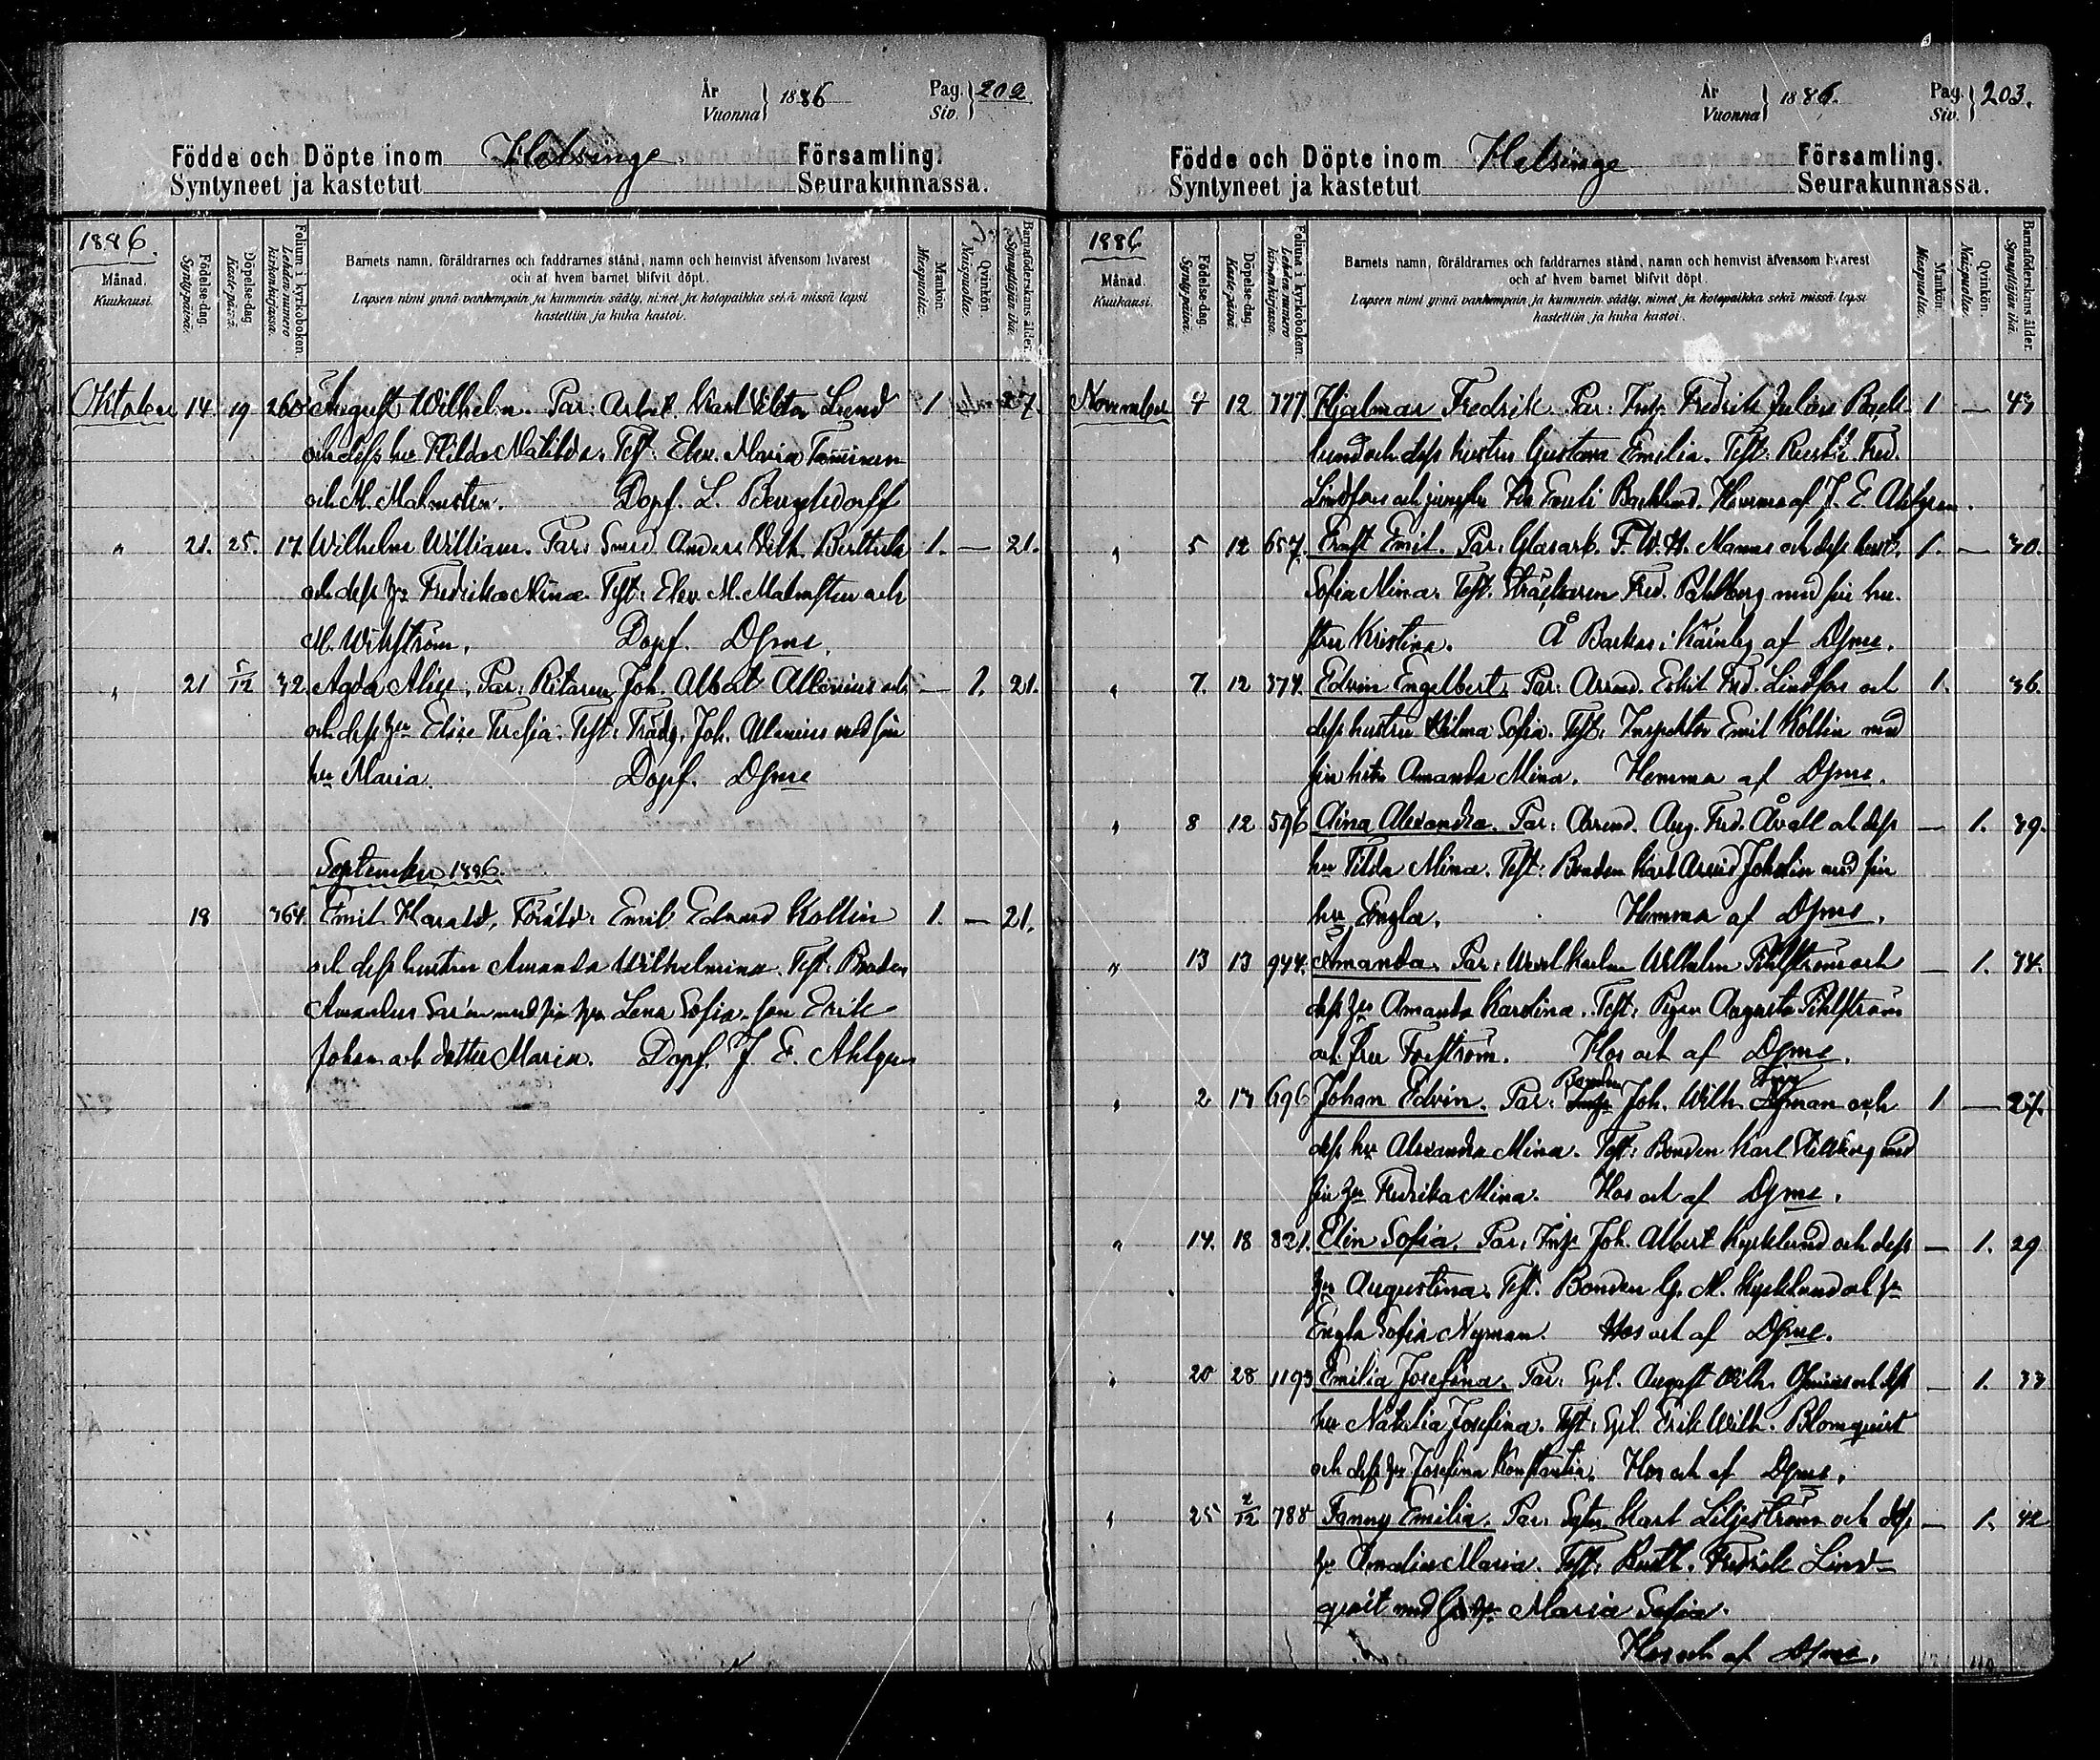 År Vuonna } 1886 Pag. Siv. } 202
Födde och Döpte inom Helsinge Församling.
Syntyneet ja kastetut Seurakunnassa.
1886.
Månad. Kuukausi.
Födelse-dag. Synty-päivä.
Döpelse-dag. Kaste-päivä.
Folium i kyrkoboken. Lehden numero kirkonkirjassa.
Barnets namn, föräldrarnes och faddrarnes stånd, namn och hemvist äfvensom hvarest
och af hvem barnet blifvit döpt.
Lapsen nimi ynnä vanhempain ja kummein sääty, nimet ja kotopaikka sekä missä lapsi
kastettiin ja kuka kastoi.
Mankön. Miespuolia.
Qvinkön. Naispuolia.
Barnaföderskans ålder. Synnyttäjän ikä.
Oktober 14. 19. 260 August Wilhelm. Par: Arbet. Karl Viktor Lund 1 27.
och dess hu Hilda Matilda. Test: Elev. Maria Tamminen
och M. Malmsten. Dopf. L. Bengelsdorff
" 21. 25. 17. Wilhelm William. Par: Smed Anders Vilh. Berthula 1. — 21.
och dess hu Fredrika Mina. Test: Elev. M. Malmsten och
M. Wikström. Dopf. Dsme.
" 21 5/12 32. Agda Alice. Par: Ritaren Joh. Albert Allenius och — 1. 21.
och dess hu Elise Tersia. Test: Trädg. Joh. Allenius med sin
hu Maria. Dopf. Dsme
September 1886.
18 364. Emil Harald. Föräld: Emil Edvard Kollin 1. — 21.
och dess hustru Amanda Wilhelmina. Test: Bonden
Amandus med sin hu Lena Sofia, son Erik
Johan och dotter Maria. Dopf. J. E. Ahlgren
År Vuonna } 1886. Pag. Siv. } 203.
Födde och Döpte inom Helsinge Församling.
Syntyneet ja kastetut Seurakunnassa.
1886
Månad. Kuukausi.
Födelse-dag. Synty-päivä.
Döpelse-dag. Kaste-päivä.
Folium i kyrkoboken. Lehden numero kirkonkirjassa.
Barnets namn, föräldrarnes och faddrarnes stånd, namn och hemvist äfvensom hvarest
och af hvem barnet blifvit döpt.
Lapsen nimi ynnä vanhempain ja kummein sääty, nimet ja kotopaikka sekä missä lapsi
kastettiin ja kuka kastoi.
Mankön. Miespuolia.
Qvinkön. Naispuolia.
Barnaföderskans ålder. Synnyttäjän ikä.
November 4 12 377. Hjalmar Fredrik. Par: Inhys Fredrik Julius Back- 1 — 43
lund och dess hustru Gustava Emilia. Test: Rusth. Fred.
Lindfors och jungfru Ida Emili Backlund. Hemma af J. E. Ahlgren.
" 5 12 657. Ernst Emil. Par: Glasarb. F. W. H. Manns och dess hust. 1. — 30.
Sofia Mina. Test: Sträckaren Fred. Pahlberg med sin hu-
stru Kristina. Å Backas i Kårböle af Dsme.
" 7. 12 374. Edvin Engelbert. Par: Arrend. Eskil Fred. Lindfors och 1. 36.
dess hustru Vilma Sofia. Test: Inspektor Emil Kollin med
sin hustru Amanda Mina. Hemma af Dsme.
" 8 12 596 Aina Alexandra. Par: Arrend. Aug. Fred. Åvall och dess — 1. 39.
hu Tilda Mina. Test: Bonden Karl Arvid Joholin med sin
hu Engla. Hemma af Dsme.
" 13 13 944. Amanda. Par: Verkkarlen Wilhelm Pihlström och — 1. 34.
dess hu Amanda Karolina. Test: Pigan Augusta Pihlström
och Fru Forsström. Hos och af Dsme.
" 2 13 696 Johan Edvin. Par: Bonden Joh. Wilh. Dyman och 1 — 27.
dess hu Alexandra Mina. Test: Bonden Karl Stillberg med
sin hu Fredrika Mina. Hos och af Dsme.
" 14. 18 821. Elin Sofia. Par: Inhys Joh. Albert Kycklund och dess — 1. 29
hu Augustina. Test. Bonden G. M. Kycklund och hu
Engla Sofia Nyman. Hos och af Dsme.
" 20 28 1193 Emilia Josefina. Par: August Vilh. och dess — 1. 33
hu Natalia Josefina. Test: Erik Wilh. Blomqvist
och dess hu Josefina Konstantia. Hos och af Dsme.
" 25 2/12 788 Fanny Emilia. Par: Karl Liljeström och dess — 1. 42
hu Amalia Maria. Test: Rusth. Fredrik Lind-
qvist med hu Maria Sofia.
Hos och af Dsme.